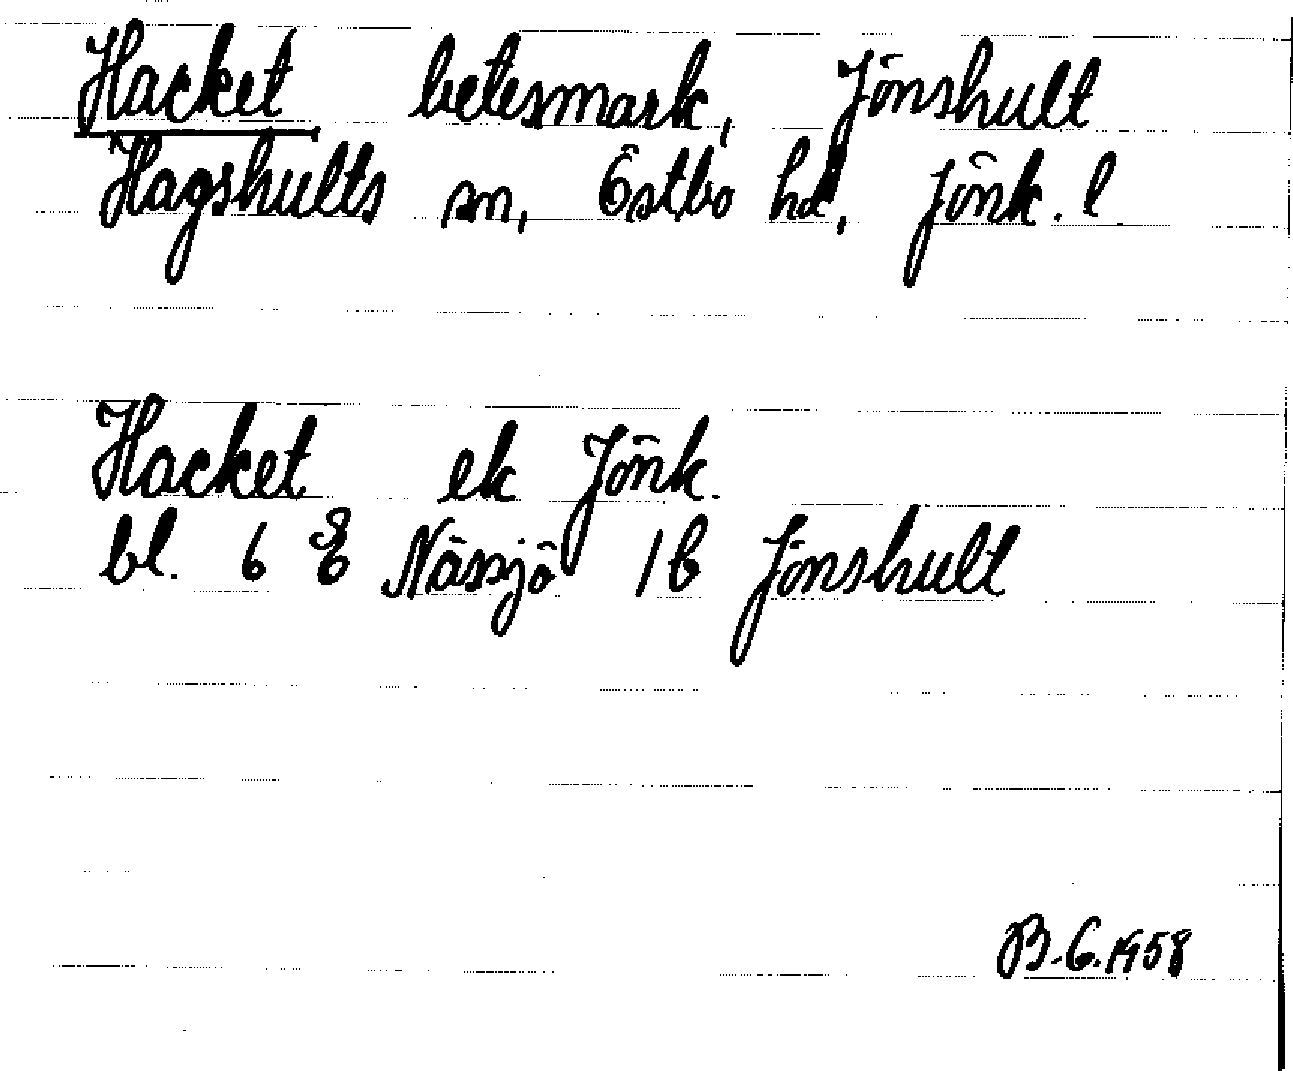 Hacket betesmark, Jönshult
Hagshults sn, Östbo hd, Jönk. l
Hacket ek Jönk.
bl. 6 E Nässjö 1b Jönshult
B.G. 1958